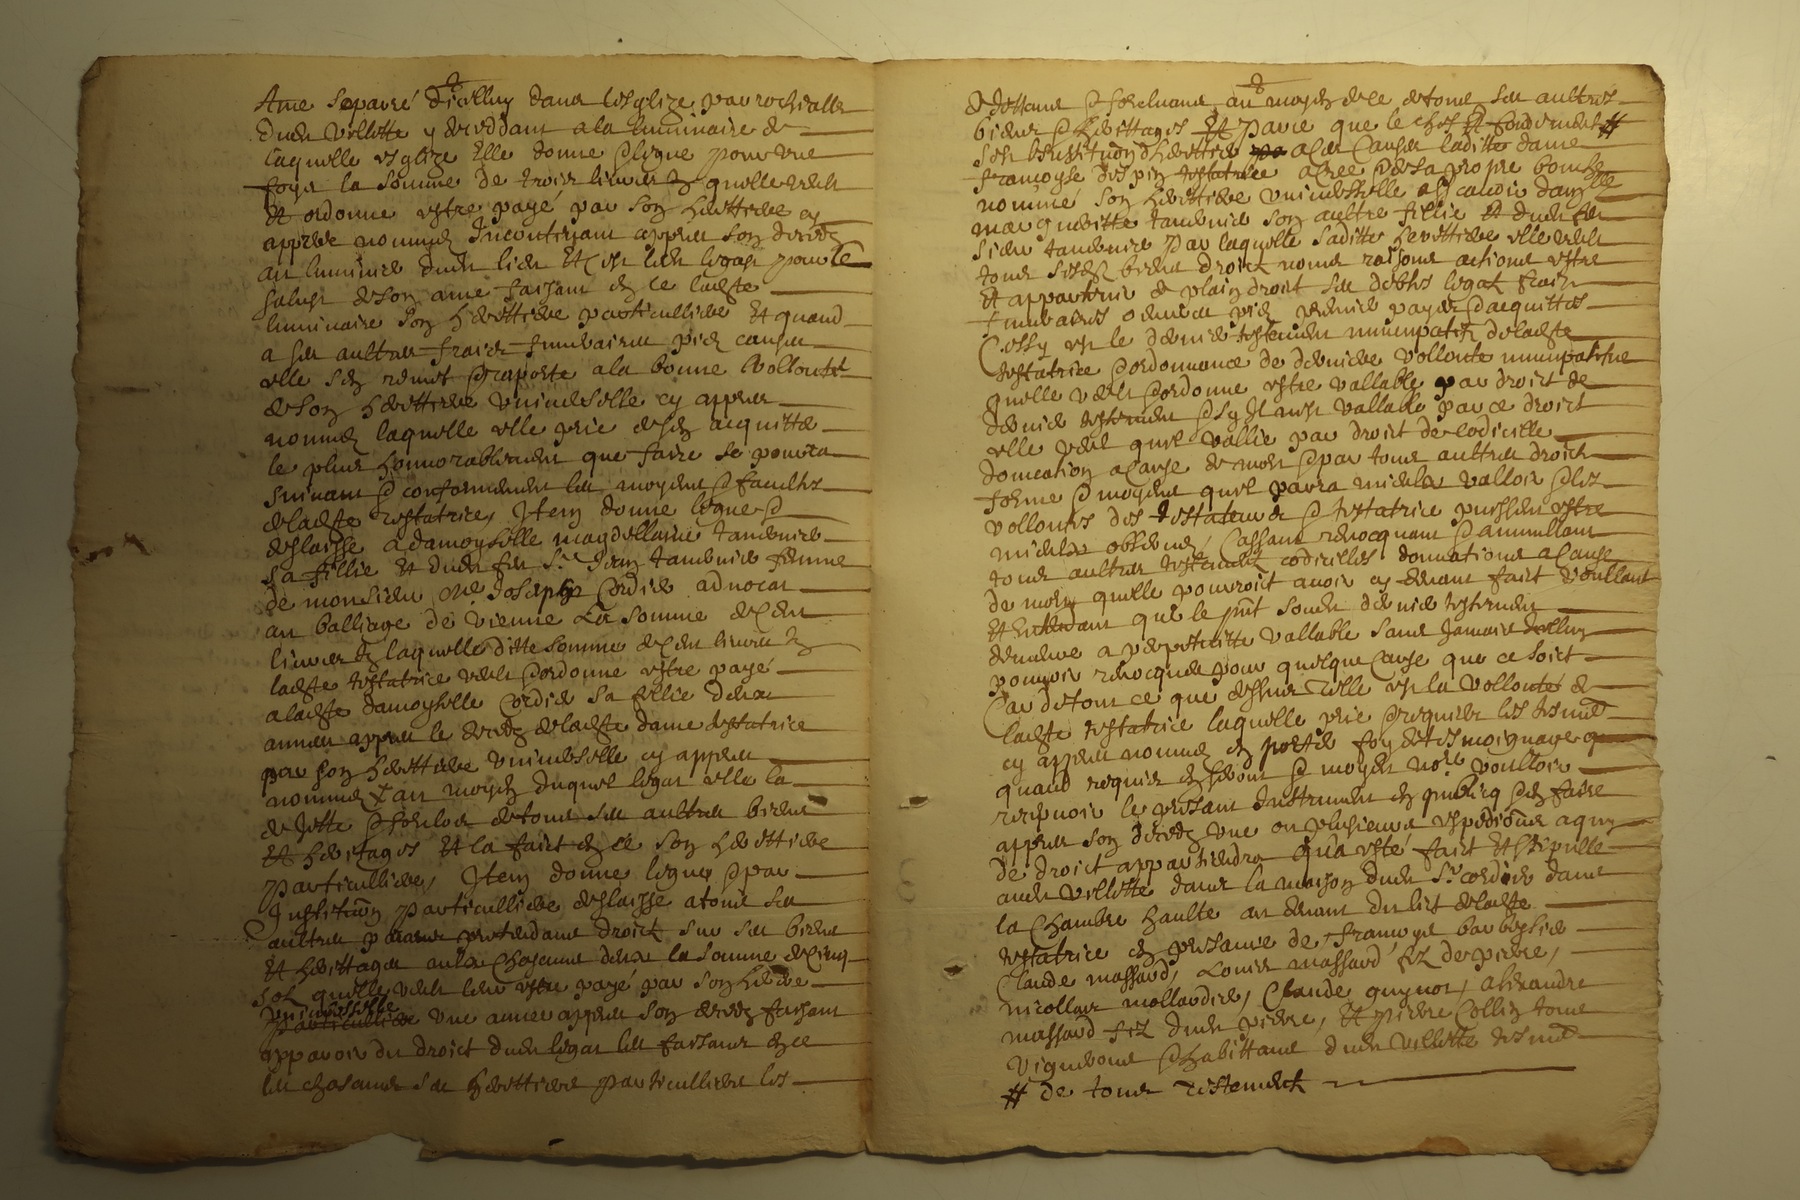 Ame separré d'icelluy dans lesglize parrochialle
dudit Villette y deceddant a la luminaire de
laquelle esglize Elle donne & legue pour une
foys la somme de trois livres tz quelle veult
Et ordonne estre payé par son herittiere cy
appres nommée Incontinant appres son deceds
au luminier dudit lieu Et cest ledit legat pour le
salust de son ame faisant en ce ladite
luminaire son herittiere particulliere Et quand
a ses aultres fraictz funebraires pies causes
elle sen remet & raporte a la bonne Vollonté
de son herittiere universelle cy appres
nommée laquelle elle prie de sen acquitter
le plus honnorablement que faire se pourra
suivant & conformement les moyens & facultes
de ladite testatrice, Item donne legue &
deslaisse a damoyselle magdellaine tavernier
sa fillie Et dudit feu Sr Jean tavernier femme
de monsieur me Joseph Cordier advocat
au balliage de Vienne La somme de cent
livres tz laquelle ditte somme de cent livres tz
ladite testatrice veult & ordonne estre payé
a ladite damoyselle Cordier sa fillie deux
annees appres le deceds de ladite dame testatrice
par son herittiere universelle cy appres
nommée & au moyen duquel legat elle la
dejette & forclos de tous ses aultres biens
Et heritages Et la faict en ce son herittiere
particulliere, Item donne legue & par
Institution particulliere deslaisse a tous ses
aultres parans pretendans droict sur ses biens
Et herittages aultre chascune deux la somme de cinq
solz quelle veult leur estre payé par son heritiere
universelle
particulliere une annee appres son deceds faisant
apparoir du droict dudit legat les faisant en ce
les chascuns ses herittiers particulliers les
dejettans & forcluans au moyen de ce de tous ses aultres
biens & herittages Et parce que le chef Et fondement #
sest linstitution dherittier a ces causes laditte dame
françoyse despin testatrice a cree & de sa propre bouche
nommé son herittiere universelle assavoir damlle
margueritte tavernier son aultre fillie Et dudit feu
sieur tavernier par laquelle saditte herittiere elle veult
tous sesdits biens droictz noms raisons actions estre
Et appartenir de plain droict ses debtes legatz frais
funebraires & œuvres pies premier payes & acquittes
Cessy est le dernier testement nuncupatif de ladite
testatrice & ordonnance de derniere vollonté nuncupative
quelle veult & ordonne estre vallable par droict de
dernier testement & sy Il nest vallable par ce droict
elle veult quil vallie par droict de codicille
donnation a cause de mort & par tous aultres droictz
forme & moyens quil pourra mieulx valloir & les
vollontes des testateurs & testatrice puissent estre
mieulx observées, Cassant revocquant & annullant
tous aultres testementz codicilles donnations a cause
de mort quelle pourroit avoir cy devant faict voullant
Et entendant que le pnt soudit dernier testement
demeure a perpetuitte vallable sans Jamais icelluy
pouvoir revocquer pour quelque cause que ce soict
Car de tout ce que dessus telle est la Vollonté de
ladite testatrice laquelle prie & requier les tesmoingz
cy appres nommés en porter foy & tesmoignage quand
requis en seront & moy dit notre voulloir
recepvoir le presant Instrument en publicq & en faire
appres son deceds une ou plusieurs expeditions a quy
de droict appartiendra qua esté faict Et stipullé
audit villette dans la maison dudit Sr cordier dans
la chambre haulte au devant du lict de ladite
testatrice en presance de françoys
Claude massard, Louis massard filz de pierre,
nicollas mollardier, Claude guynot, alexandre
massard filz dudit pierre, Et pierre Collin tous
vignerons & habittans dudit villette tesmoingz
# de tous testementz